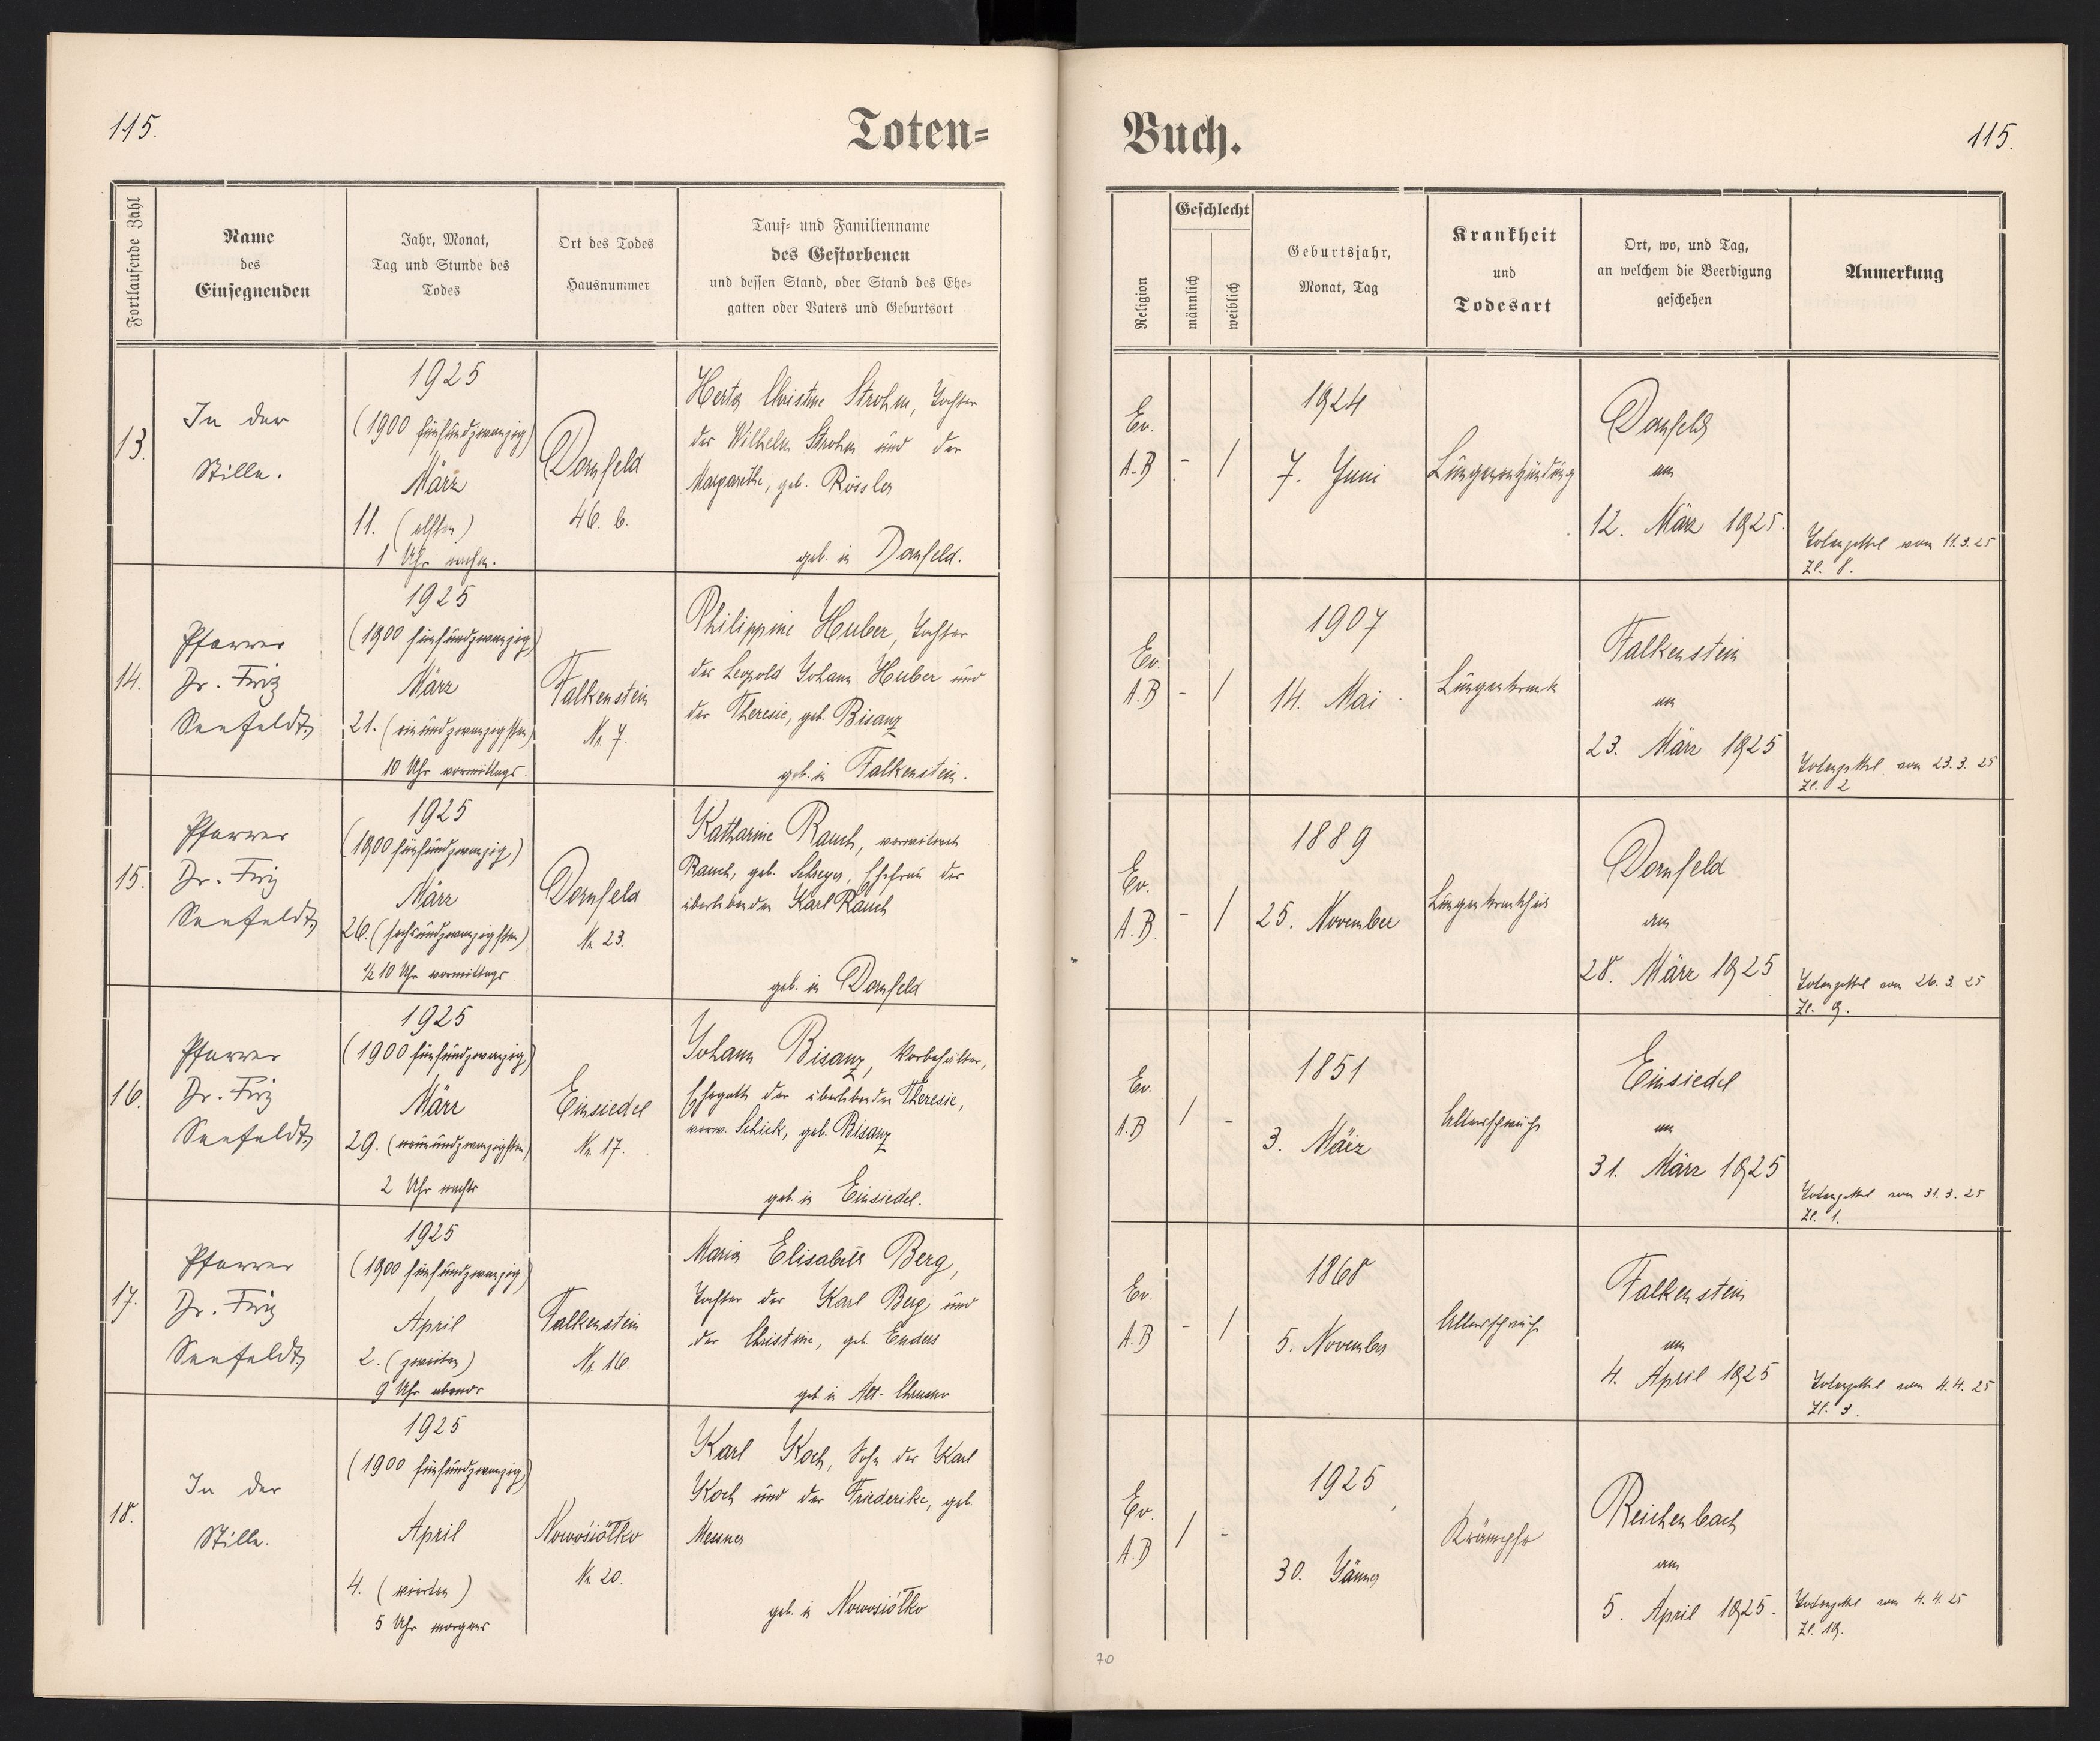 115.
Toten=
Fortlaufende Zahl
Name
des
Einsegnenden
Jahr, Monat,
Tag und Stunde des
Todes
Ort des Todes
Hausnummer
Tauf= und Familienname
des Gestorbenen
und dessen Stand, oder Stand des Ehe=
gatten oder Vaters und Geburtsort
13.
In der
Stille.
1925
(1900 fünfundzwanzig)
März
11. (elften)
1 Uhr nachm.
Dornfeld
46. b.
Herta Christine Strohm, Tochter
des Wilhelm Strohm und der
Margarethe, geb. Rössler
geb. in Dornfeld.
14.
Pfarrer
Dr. Friz
Seefeldt
1925
(1900 fünfundzwanzig)
März
21. (einundzwanzigsten)
10 Uhr vormittags.
Falkenstein
Nr. 7.
Philippine Huber, Tochter
des Leopold Johann Huber und
der Theresie, geb. Bisanz
geb. in Falkenstein.
15.
Pfarrer
Dr. Friz
Seefeldt
1925
(1900 fünfundzwanzig)
März
26. (sechsundzwanzigsten)
½ 10 Uhr vormittags
Dornfeld
Nr. 23.
Katharine Rauch, verwitwet
Rauch, geb. Schreyer, Ehefrau des
überlebenden Karl Rauch
geb. in Dornfeld
16.
Pfarrer
Dr. Friz
Seefeldt
1925
(1900 fünfundzwanzig)
März
29. (neunundzwanzigsten)
2 Uhr nachts
Einsiedel
Nr. 17.
Johann Bisanz, Vorbehälter,
Ehegatte der überlebenden Theresie,
verw. Schick, geb. Bisanz
geb. in Einsiedel.
17.
Pfarrer
Dr. Friz
Seefeldt
1925
(1900 fünfundzwanzig)
April
2. (zweiten)
9 Uhr abends
Falkenstein
Nr. 16.
Maria Elisabeth Berg,
Tochter des Karl Berg und
der Christine, geb. Enders
geb. in Alt-Chrusno
18.
In der
Stille.
1925
(1900 fünfundzwanzig)
April
4. (vierten)
5 Uhr morgens
Nowosiółko
Nr. 20.
Karl Koch, Sohn des Karl
Koch und der Friederike, geb.
Messner
geb. in Nowosiółko
Buch.
115.
Religion
Geschlecht
männlich
weiblich
Geburtsjahr,
Monat, Tag
Krankheit
und
Todesart
Ort, wo, und Tag,
an welchem die Beerdigung
geschehen
Anmerkung
Ev.
A.B
-
/
1924
7. Juni
Lungenentzündung
Dornfeld
am
12. März 1925.
Totenzettel vom 11.3.25
Zl. 8.
Ev.
A.B
-
/
1907
14. Mai
Lungenkrank
Falkenstein
am
23. März 1925
Totenzettel vom 23.3.25
Zl. 2
Ev.
A.B.
-
/
1889
25. November
Lungenkrankheit
Dornfeld
am
28. März 1925
Totenzettel vom 26.3.25
Zl. 9.
Ev.
A.B
/
-
1851
3. März
Altersschwäche
Einsiedel
am
31. März 1925
Totenzettel vom 31.3.25
Zl. 1.
Ev.
A.B
-
/
1868
5. November
Altersschwäche
Falkenstein
am
4. April 1925
Totenzettel vom 4.4.25
Zl. 3.
Ev.
A.B
/
-
1925
30. Jänner
Krämpfe
Reichenbach
am
5. April 1925.
Totenzettel vom 4.4.25
Zl. 19.
70